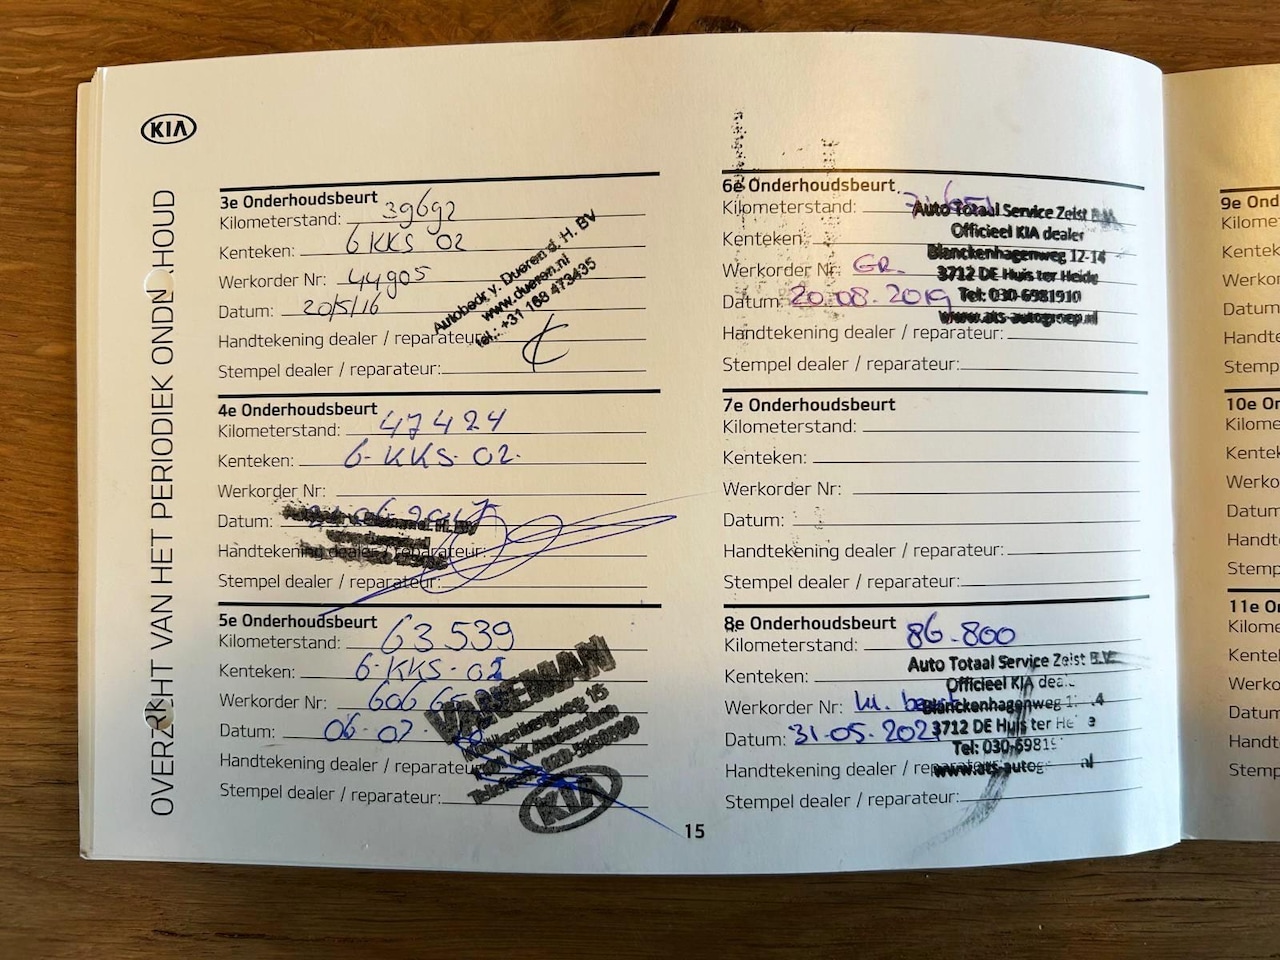 KIA
OVERZICHT VAN HET PERIODIEK ONDERHOUD
3e Onderhoudsbeurt
Kilometerstand: 39692
Kenteken: 6 KKS 02
Werkorder Nr: 44905
Datum: 20/5/16
Handtekening dealer / reparateur:
Stempel dealer / reparateur:
Autobedr. v. Dueren d. H. BV
www.dueren.nl
Tel.: +31 168 473435
4e Onderhoudsbeurt
Kilometerstand: 47424
Kenteken: 6-KKS-02.
Werkorder Nr:
Datum:
Handtekening dealer / reparateur:
Stempel dealer / reparateur:
5e Onderhoudsbeurt
Kilometerstand: 63539
Kenteken: 6-KKS-02
Werkorder Nr:
Datum: 06-07
Handtekening dealer / reparateur:
Stempel dealer / reparateur:
KIA
15
6e Onderhoudsbeurt
Kilometerstand:
Kenteken:
Werkorder Nr: GR.
Datum: 20.08.2019
Handtekening dealer / reparateur:
Stempel dealer / reparateur:
Auto Totaal Service Zeist B.V.
Officieel KIA dealer
Blanckenhagenweg 12-14
3712 DE Huis ter Heide
Tel: 030-6981910
www.ats-autogroep.nl
7e Onderhoudsbeurt
Kilometerstand:
Kenteken:
Werkorder Nr:
Datum:
Handtekening dealer / reparateur:
Stempel dealer / reparateur:
8e Onderhoudsbeurt
Kilometerstand: 86.800
Kenteken:
Werkorder Nr: kl. beurt
Datum: 31-05-202
Handtekening dealer / reparateur:
Stempel dealer / reparateur:
Auto Totaal Service Zeist B.V.
Officieel KIA
Blanckenhagenweg
3712 DE Huis ter
Tel: 030-6981
www.ats-autog
9e Ond
Kilome
Kentek
Werko
Datum
Handte
Stemp
10e On
Kilome
Kentek
Werko
Datum
Handt
Stemp
11e On
Kilome
Kentel
Werko
Datum
Handt
Stemp